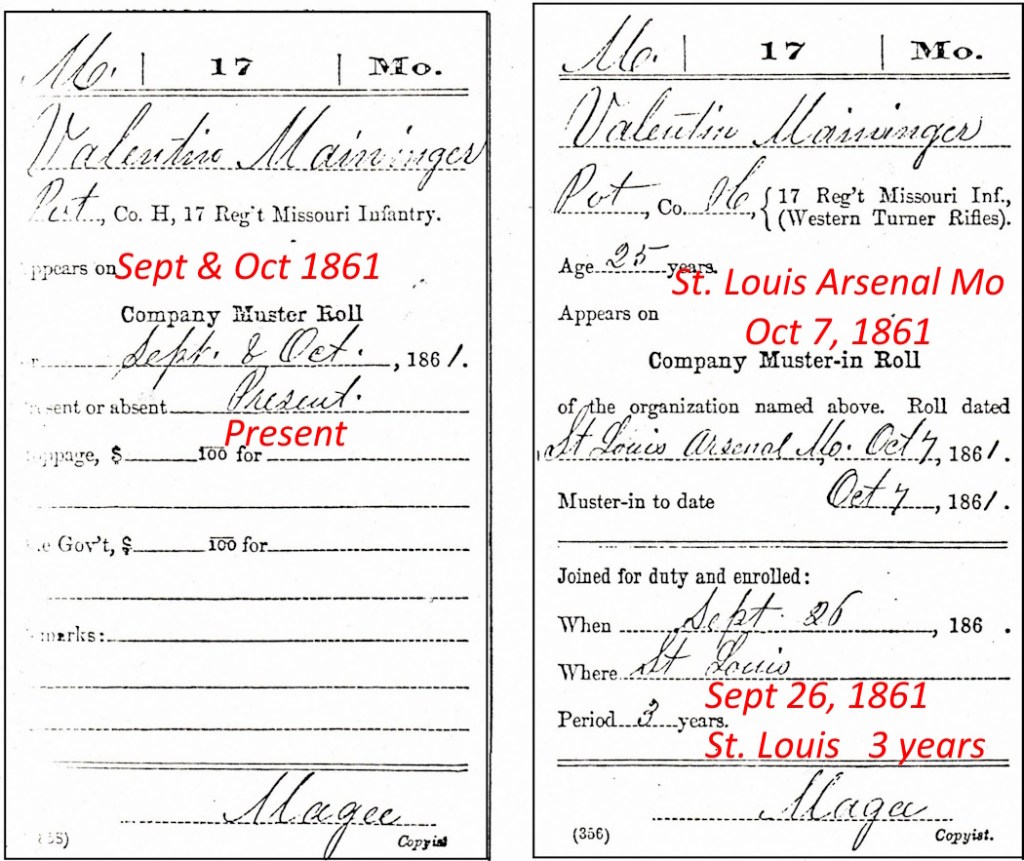 M. | 17 | Mo.
Valentin Maininger
Pvt., Co. H, 17 Reg't Missouri Infantry.
ppears on Sept & Oct 1861
Company Muster Roll
r Sept. & Oct., 1861.
sent or absent Present.
Present
oppage, $ 100 for
e Gov't, $ 100 for
marks:
Magee
Copyist
M. | 17 | Mo.
Valentin Maininger
Pvt, Co. H, { 17 Reg't Missouri Inf.,
(Western Turner Rifles).
Age 25 years.
St. Louis Arsenal Mo
Appears on
Oct 7, 1861
Company Muster-in Roll
of the organization named above. Roll dated
St Louis Arsenal Mo. Oct 7, 1861.
Muster-in to date Oct 7, 1861.
Joined for duty and enrolled:
When Sept. 26, 186 .
Where St Louis
Sept 26, 1861
Period 3 years.
St. Louis 3 years
Magee
(356) Copyist.